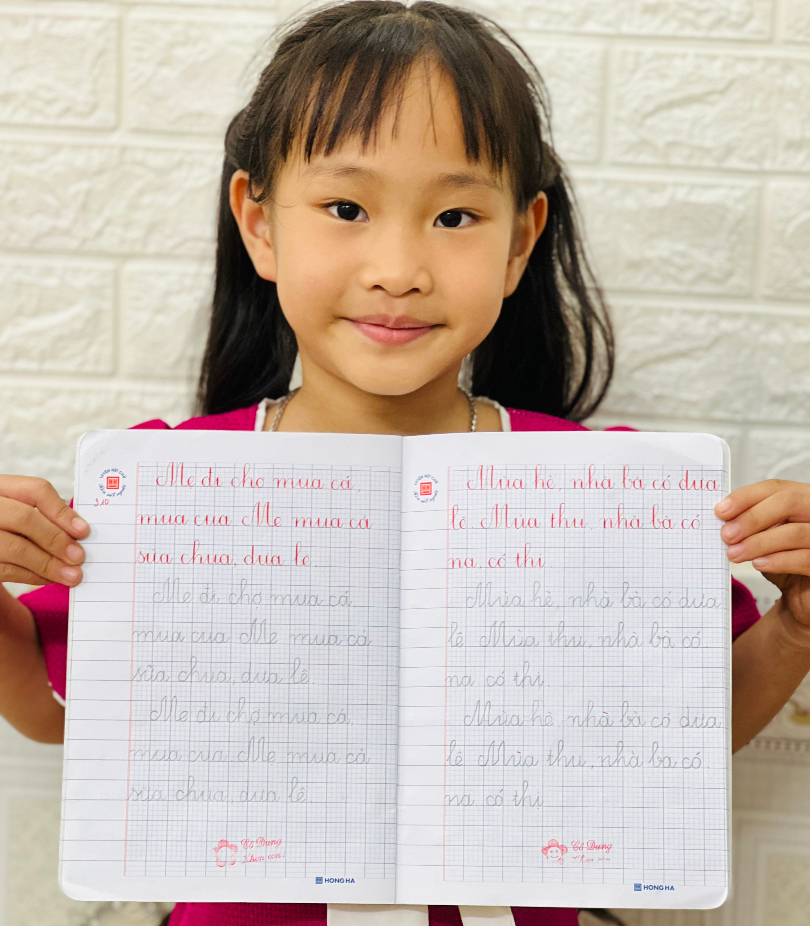 Mẹ đi chợ mua cá,
mua cua. Mẹ mua cả
sữa chua, dưa lê.
Mẹ đi chợ mua cá,
mua cua. Mẹ mua cả
sữa chua, dưa lê.
Mẹ đi chợ mua cá,
mua cua. Mẹ mua cả
sữa chua, dưa lê.
Cô Dung
Khen con!
HONG HA
Mùa hè, nhà bà có dưa
lê. Mùa thu, nhà bà có
na, có thị.
Mùa hè, nhà bà có dưa
lê. Mùa thu, nhà bà có
na, có thị.
Mùa hè, nhà bà có dưa
lê. Mùa thu, nhà bà có
na, có thị.
Cô Dung
Khen con!
HONG HA